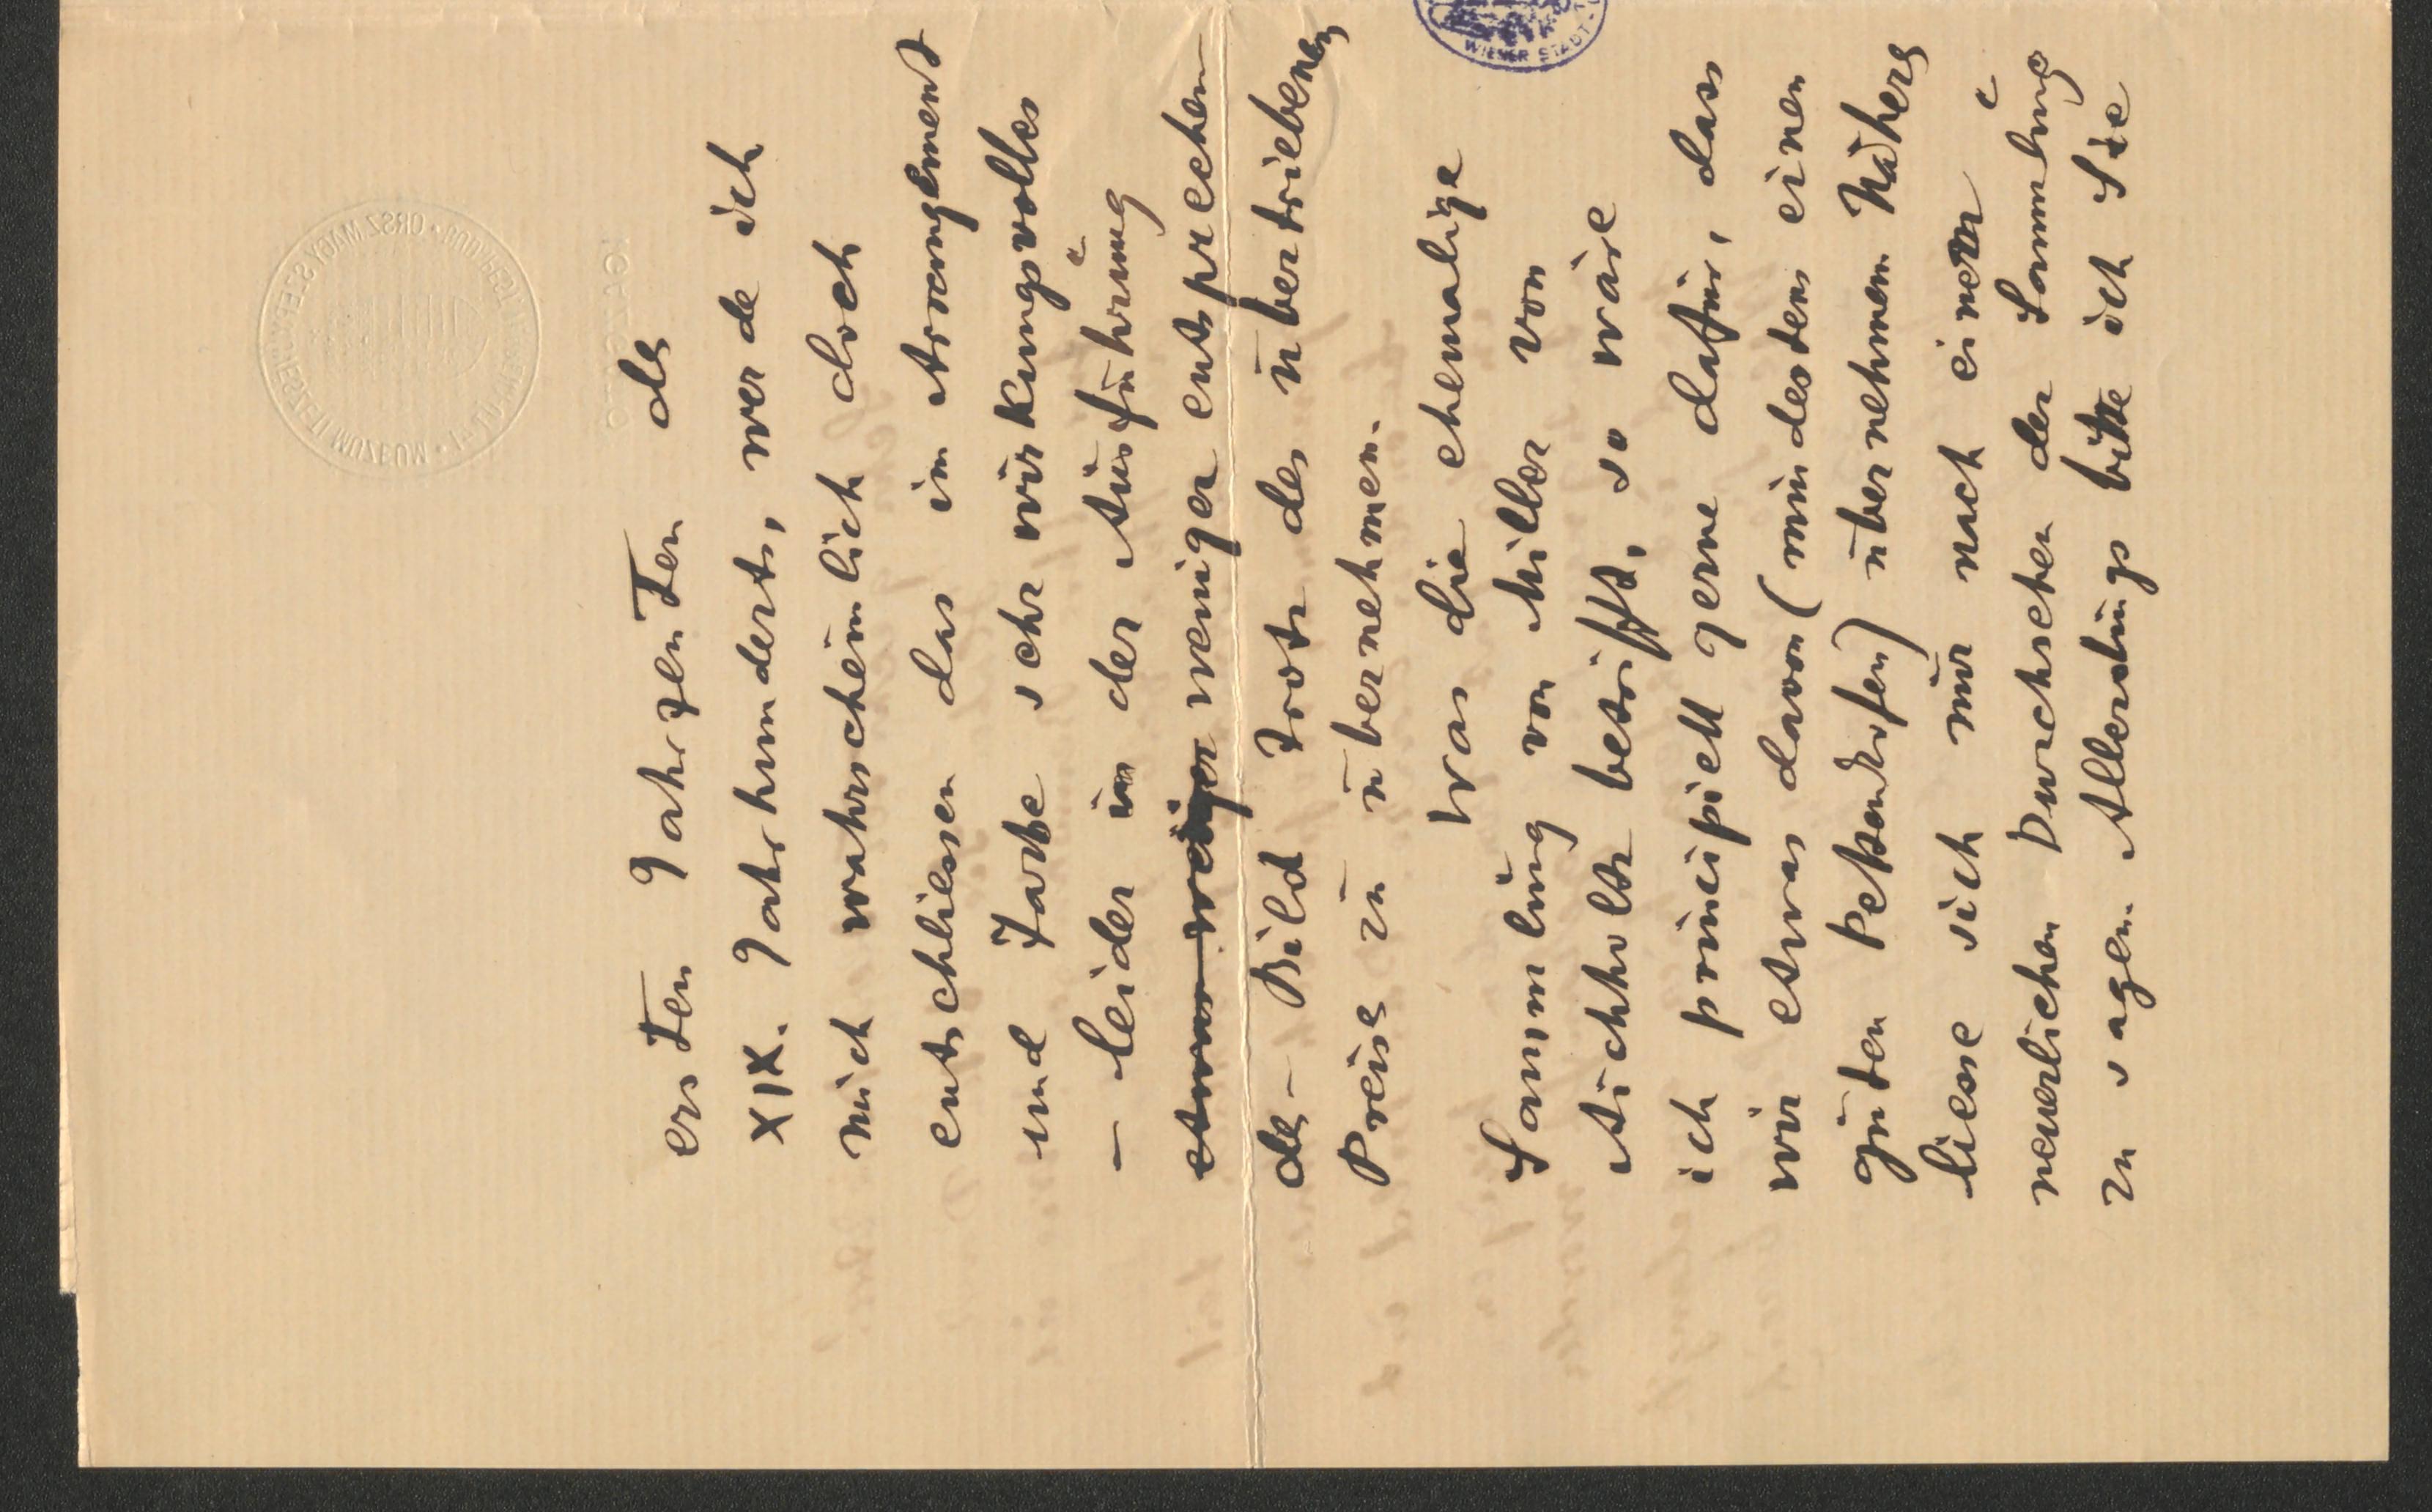 ersten Jahrzenten des
XIX. Jahrhunderts, werde ich
mich wahrscheinlich doch
entschliessen das im Arrangement
und Farbe sehr wirkungsvolle
– leider in der Ausführung
etwas weniger weniger entsprechen
de – Bild trotz des übertriebenen
Preises zu übernehmen.
Was die ehemalige
Sammlung von Miller von
Aichholz betrifft, so wäre
ich principiell gerne dafür, dass
wir etwas davon (mindestens einen
guten Pettenkofen) übernehmen. Näheres
liesse sich nur nach einer
neuerlichen Durchsehen der Sammlung
zu sagen. Allerdings bitte ich Sie
WIENER STADT-
ORSZ. MAGY. SZÉPMŰVÉSZETI MUZEUM